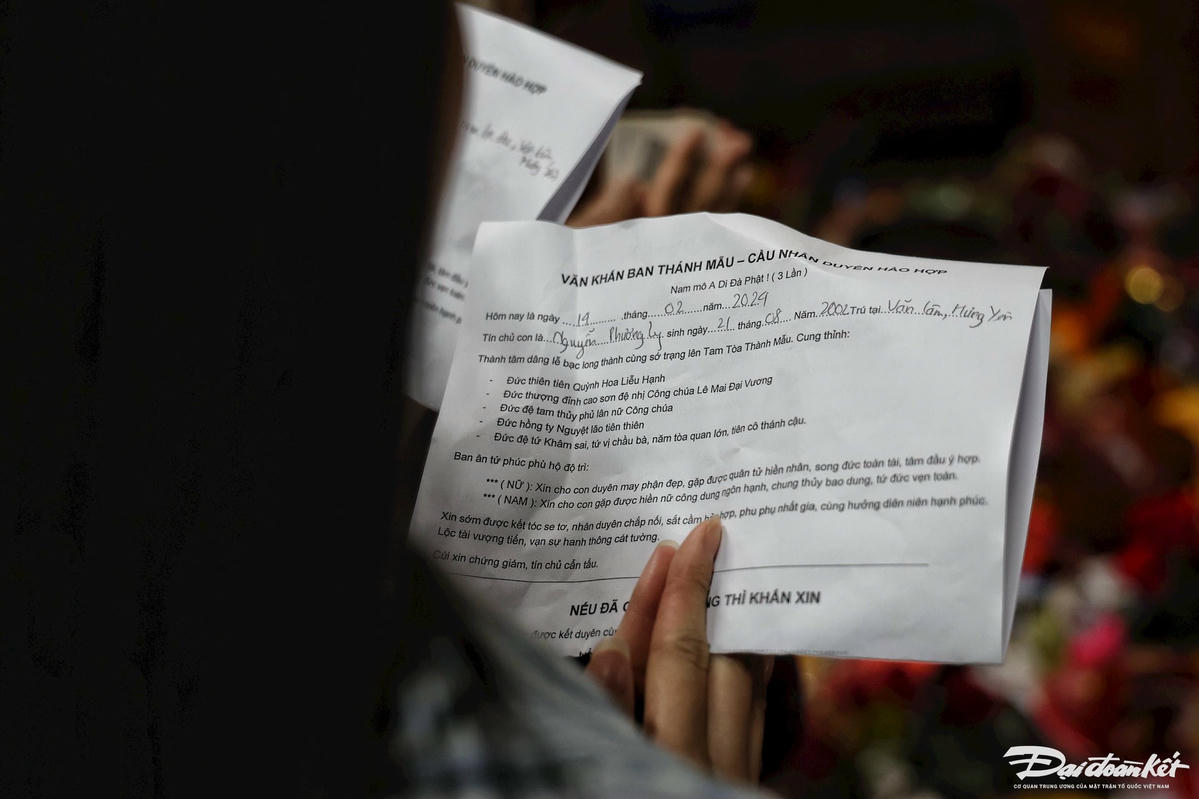 DUYÊN HẢO HỢP
VĂN KHẤN BAN THÁNH MẪU – CẦU NHÂN DUYÊN HẢO HỢP
Nam mô A Di Đà Phật ! ( 3 Lần )
Hôm nay là ngày....19...........tháng......02......năm...2024
Tín chủ con là...Nguyễn Phương Ly sinh ngày..21 tháng.08... Năm.2002 Trú tại..Văn Lâm, Hưng Yên
Thành tâm dâng lễ bạc long thành cùng sớ trạng lên Tam Tòa Thánh Mẫu. Cung thỉnh:
- Đức thiên tiên Quỳnh Hoa Liễu Hạnh
- Đức thượng đỉnh cao sơn đệ nhị Công chúa Lê Mai Đại Vương
- Đức đệ tam thủy phủ lân nữ Công chúa
- Đức hồng ty Nguyệt lão tiên thiên
- Đức đệ tứ Khâm sai, tứ vị chầu bà, năm tòa quan lớn, tiên cô thánh cậu.
Ban ân tứ phúc phù hộ độ trì:
*** ( NỮ ): Xin cho con duyên may phận đẹp, gặp được quân tử hiền nhân, song đức toàn tài, tâm đầu ý hợp.
*** ( NAM ): Xin cho con gặp được hiền nữ công dung ngôn hạnh, chung thủy bao dung, tứ đức vẹn toàn.
Xin sớm được kết tóc se tơ, nhân duyên chắp nối, sắt cầm hợp, phu phụ nhất gia, cùng hưởng diên niên hạnh phúc.
Lộc tài vượng tiến, vạn sự hanh thông cát tường.
Cúi xin chứng giám, tín chủ cẩn tấu.
NẾU ĐÃ THÌ KHẤN XIN
được kết duyên
Đại đoàn kết
CƠ QUAN TRUNG ƯƠNG CỦA MẶT TRẬN TỔ QUỐC VIỆT NAM